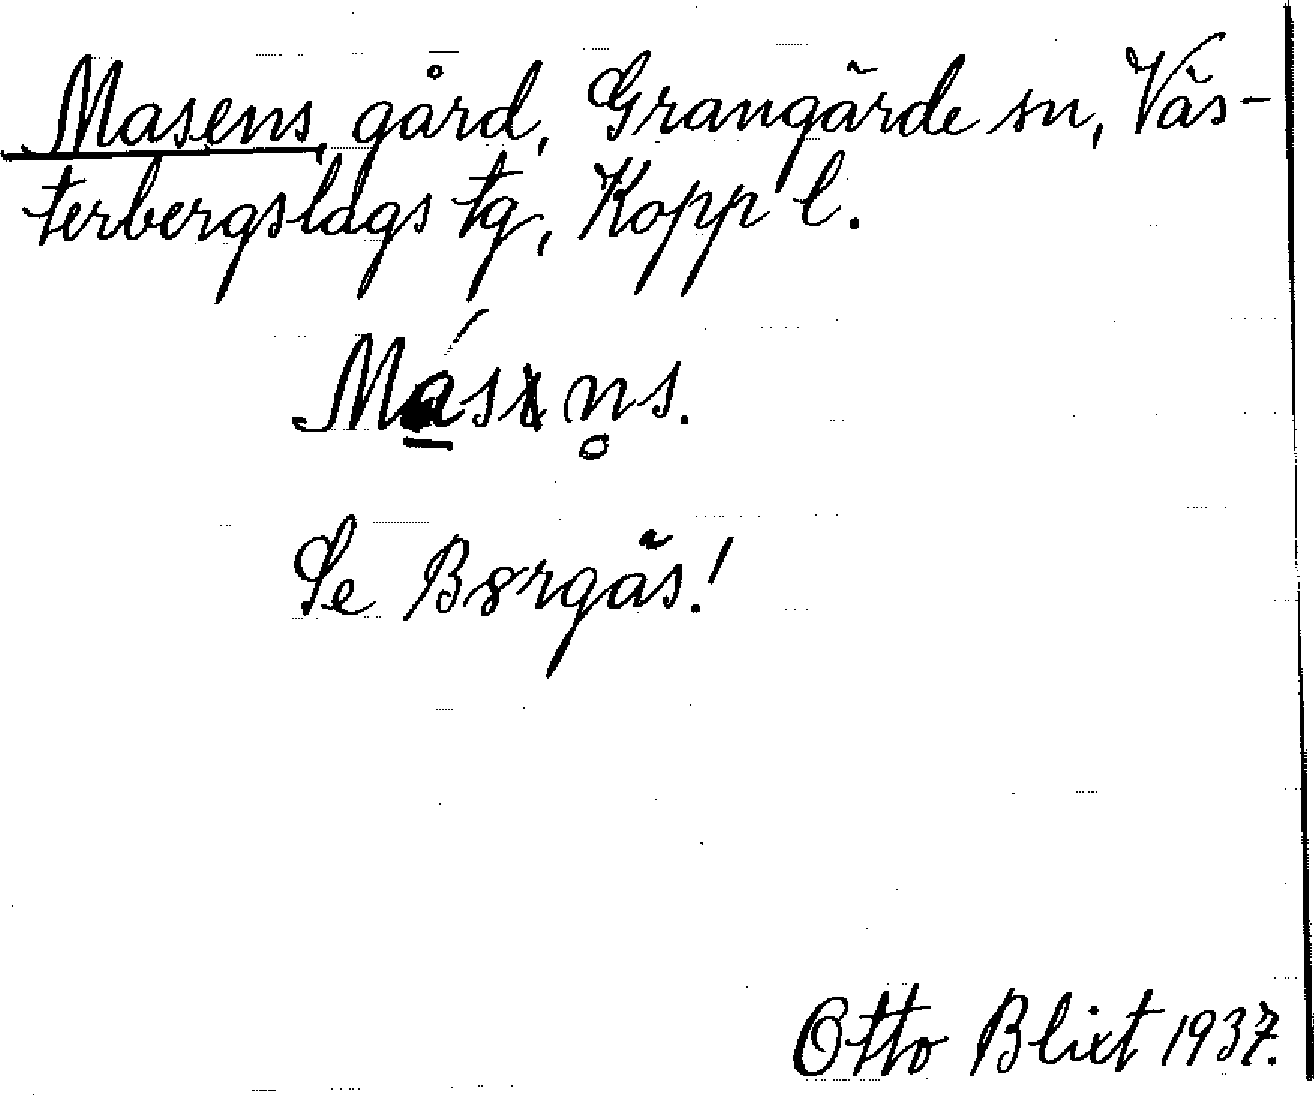 Masens gård, Grangärde sn, Väs-
terbergslags tg, Kopp l.
Másn̥s.
Se Bergås!
Otto Blixt 1937.